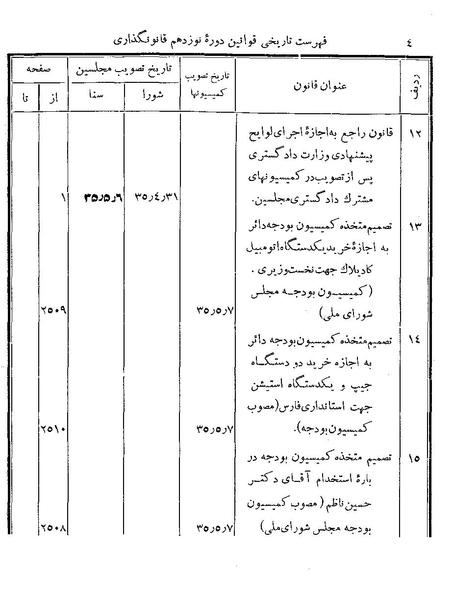 فهرست تاریخی قوانین دورهٔ نوزدهم قانونگذاری ٤
ردیف عنوان قانون تاریخ تصویب کمیسیونها تاریخ تصویب مجلسین صفحه
شورا سنا از تا
۱۲ قانون راجع به اجازهٔ اجرای لوایح
پیشنهادی وزارت دادگستری
پس از تصویب در کمیسیونهای
مشترك دادگستری مجلسین. ۳۵٫۴٫۳۱ ۳۵٫۵٫۶ ۱
۱۳ تصمیم متخذه کمیسیون بودجه دائر
به اجازهٔ خرید یکدستگاه اتومبیل
کادیلاك جهت نخست وزیری.
(کمیسیون بودجه مجلس
شورای ملی) ۳۵٫۵٫۷ ۲۵۰۹
۱۴ تصمیم متخذه کمیسیون بودجه دائر
به اجازه خرید دو دستگاه
جیپ و یکدستگاه استیشن
جهت استانداری فارس (مصوب
کمیسیون بودجه). ۳۵٫۵٫۷ ۲۵۱۰
۱۵ تصمیم متخذه کمیسیون بودجه در
بارهٔ استخدام آقای دکتر
حسین ناظم (مصوب کمیسیون
بودجه مجلس شورای ملی) ۳۵٫۵٫۷ ۲۵۰۸